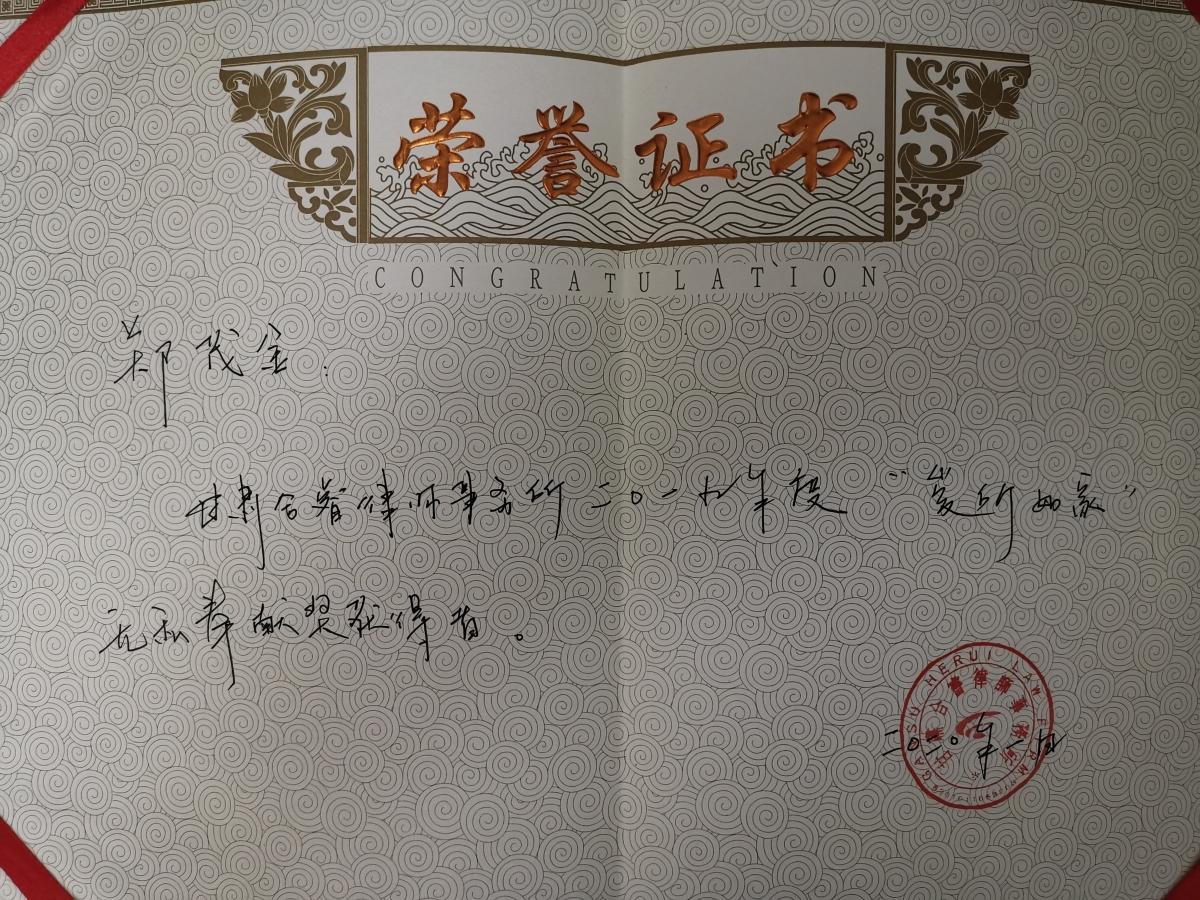 荣誉证书
CONGRATULATION
郑茂金:
甘肃合睿律师事务所二〇一九年度“爱所如家”
无私奉献奖获得者。
GANSU HERUI LAW FIRM
甘肅合睿律師事務所
二〇二〇年一月